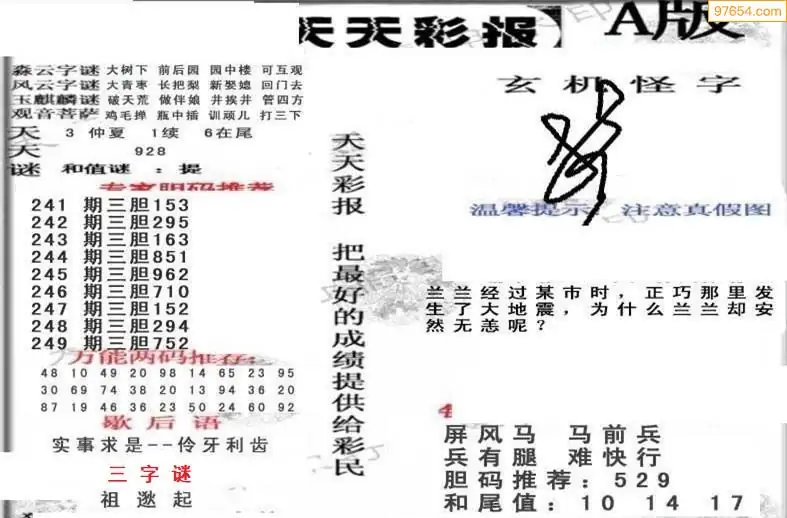 97654.com
【天天彩报】 A版
淼云字谜 大树下 前后园 园中楼 可互观
风云字谜 大青枣 长把梨 新娶媳 回门去
玉麒麟谜 破天荒 做伴娘 井挨井 管四方
观音菩萨 鸡毛掸 瓶中插 训顽儿 打三下
天 3 仲夏 1续 6在尾
天 928
谜 和值谜 ：提
专家胆码推荐
241 期三胆153
242 期三胆295
243 期三胆163
244 期三胆851
245 期三胆962
246 期三胆710
247 期三胆152
248 期三胆294
249 期三胆752
万能两码推荐：
48 10 49 20 98 14 65 23 95
30 69 74 38 20 13 94 36 20
87 19 46 36 23 50 24 60 92
歇后语
实事求是--伶牙利齿
三字谜
祖逖起
天天彩报 把最好的成绩提供给彩民
玄机怪字
温馨提示 注意真假图
兰兰经过某市时，正巧那里发
生了大地震，为什么兰兰却安
然无恙呢？
屏风马 马前兵
兵有腿 难快行
胆码推荐：529
和尾值：10 14 17